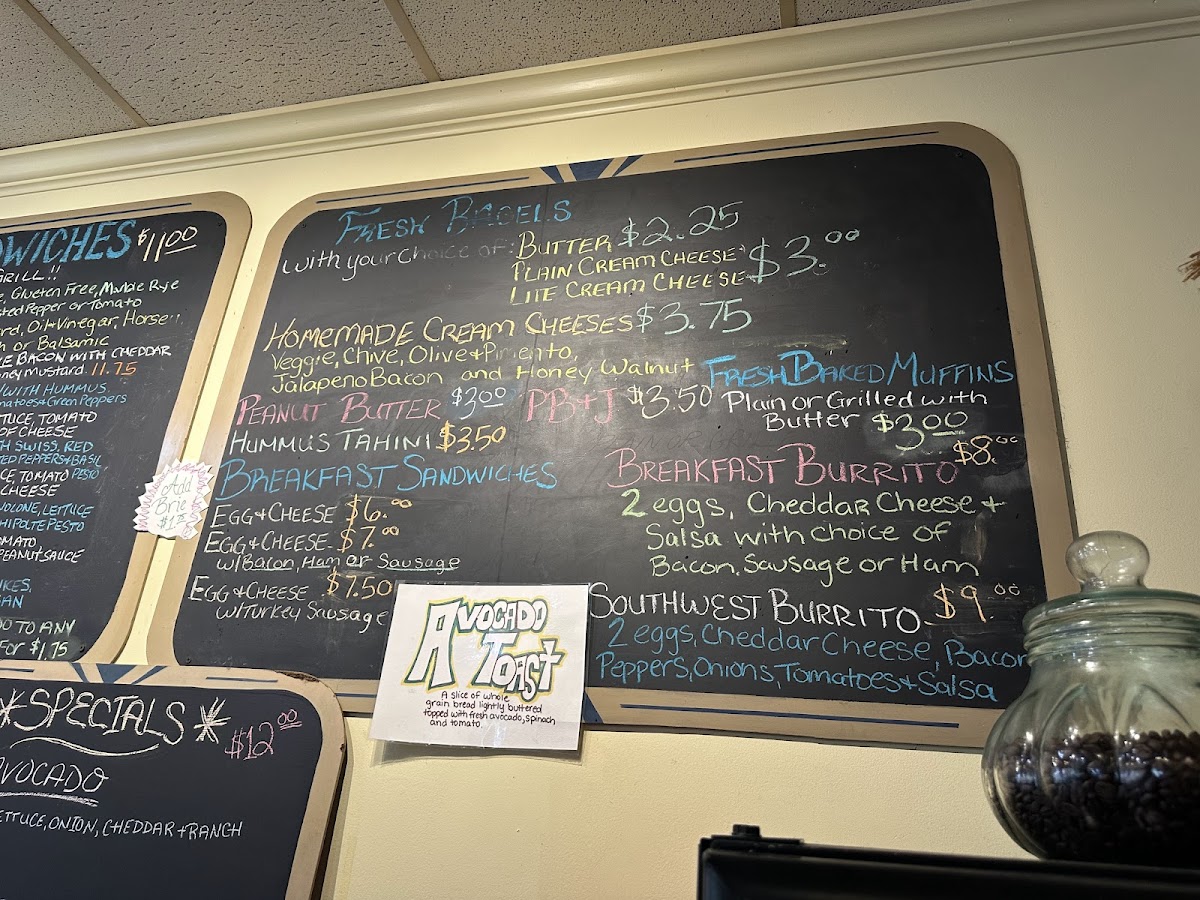 WICHES $11.00
GRILL!!
Glueten Free, Marble Rye
sted Pepper or Tomato
ard, Oil+Vinegar, Horsey,
or Balsamic
BACON WITH CHEDDAR
oney mustard 11.75
WITH HUMMUS
matoes+Green Peppers
TUCE, TOMATO
OF CHEESE
H SWISS, RED
TED PEPPERS+BASIL
CE, TOMATO PESTO
CHEESE
VOLONE, LETTUCE
HIPOLTE PESTO
OMATO,
PEANUT SAUCE
IKES,
AN
TO ANY
For $1.75
Add
Brie
$1.75
*SPECIALS* $12.00
AVOCADO
ETTUCE, ONION, CHEDDAR + RANCH
FRESH BAGELS
with your choice of: BUTTER $2.25
PLAIN CREAM CHEESE
LITE CREAM CHEESE $3.00
HOMEMADE CREAM CHEESES $3.75
Veggie, Chive, Olive+Pimento,
Jalapeno Bacon and Honey Walnut
PEANUT BUTTER $3.00 PB+J $3.50
HUMMUS TAHINI $3.50
FRESH BAKED MUFFINS
Plain or Grilled with
Butter $3.00
BREAKFAST SANDWICHES
EGG+CHEESE $6.00
EGG+CHEESE $7.00
w/Bacon, Ham or Sausage
EGG+CHEESE $7.50
w/Turkey Sausage
BREAKFAST BURRITO $8.00
2 eggs, Cheddar Cheese +
Salsa with choice of
Bacon, Sausage or Ham
SOUTHWEST BURRITO $9.00
2 eggs, Cheddar Cheese, Bacon
Peppers, Onions, Tomatoes+Salsa
AVOCADO
TOAST
A slice of whole
grain bread lightly buttered
topped with fresh avocado, spinach
and tomato.